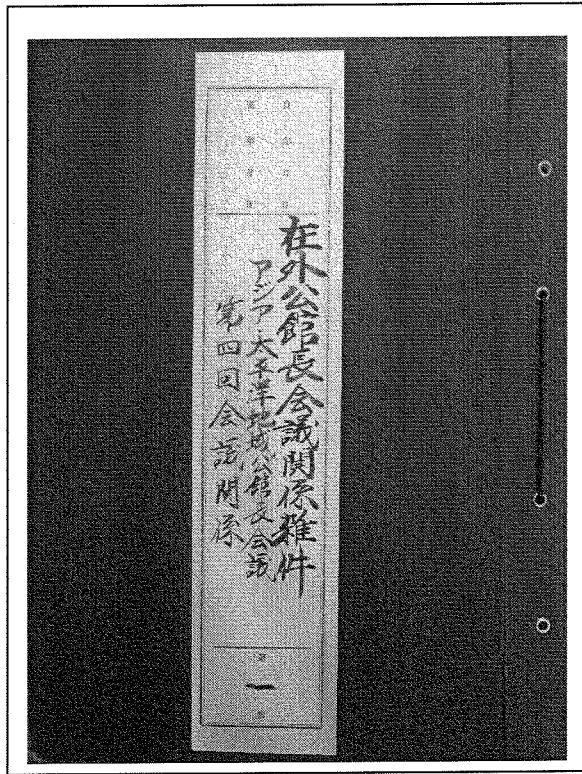 在外公館長会議関係雑件
アジア・太平洋地域公館長会議
第四回会議関係
第一